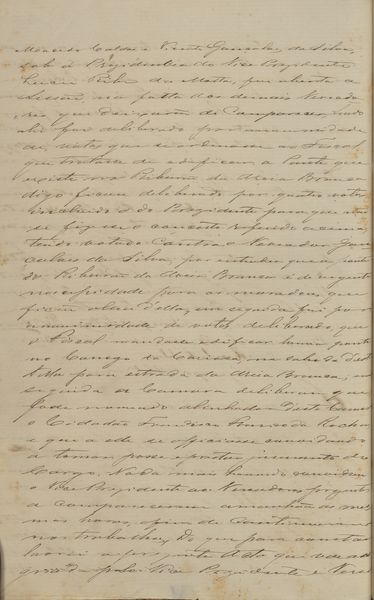 Macedo Caldas e Vicente Gonçalves da Silva,
sob a Presidencia do Vice Presidente
da Motta, foi aberta a
Sessão, na falta dos demais Vereado
res que deixarão de Comparecer, sendo
ahi foi deliberado por unanimidade
de votos que se ordenasse ao Fiscal
que tratasse de edificar a Ponte que
existe no Ribeirão da Areia Branca
digo ficou deliberado por quatro votos
do Presidente para que não
se fizesse o concerto referido acima
tendo votado Contra o Vereador Gon
çalves da Silva, por entender que a ponte
do Ribeirão da Areia Branca é de urgente
necessidade para os moradores que
ficam alem d'ella, em seguida foi por
unanimidade de votos deliberado, que
o Fiscal mandasse edificar huma ponte
no Corrego da na sahida desta
Villa para estrada da Areia Branca, em
seguida a Camara deliberou que
fosse nomeado alinhador desta Camara
o Cidadão Francisco da Rocha
e que a elle se officiasse convidando
a tomar posse e prestar juramento do
Cargo. Nada mais havendo
o Vice Presidente aos Vereadores presentes
a comparecerem amanhã as mes
mas horas, afim de Continuarem
nos trabalhos, Do que para constar
lavrei a presente Acta que vae as
signada pelo Vice Presidente e Verea